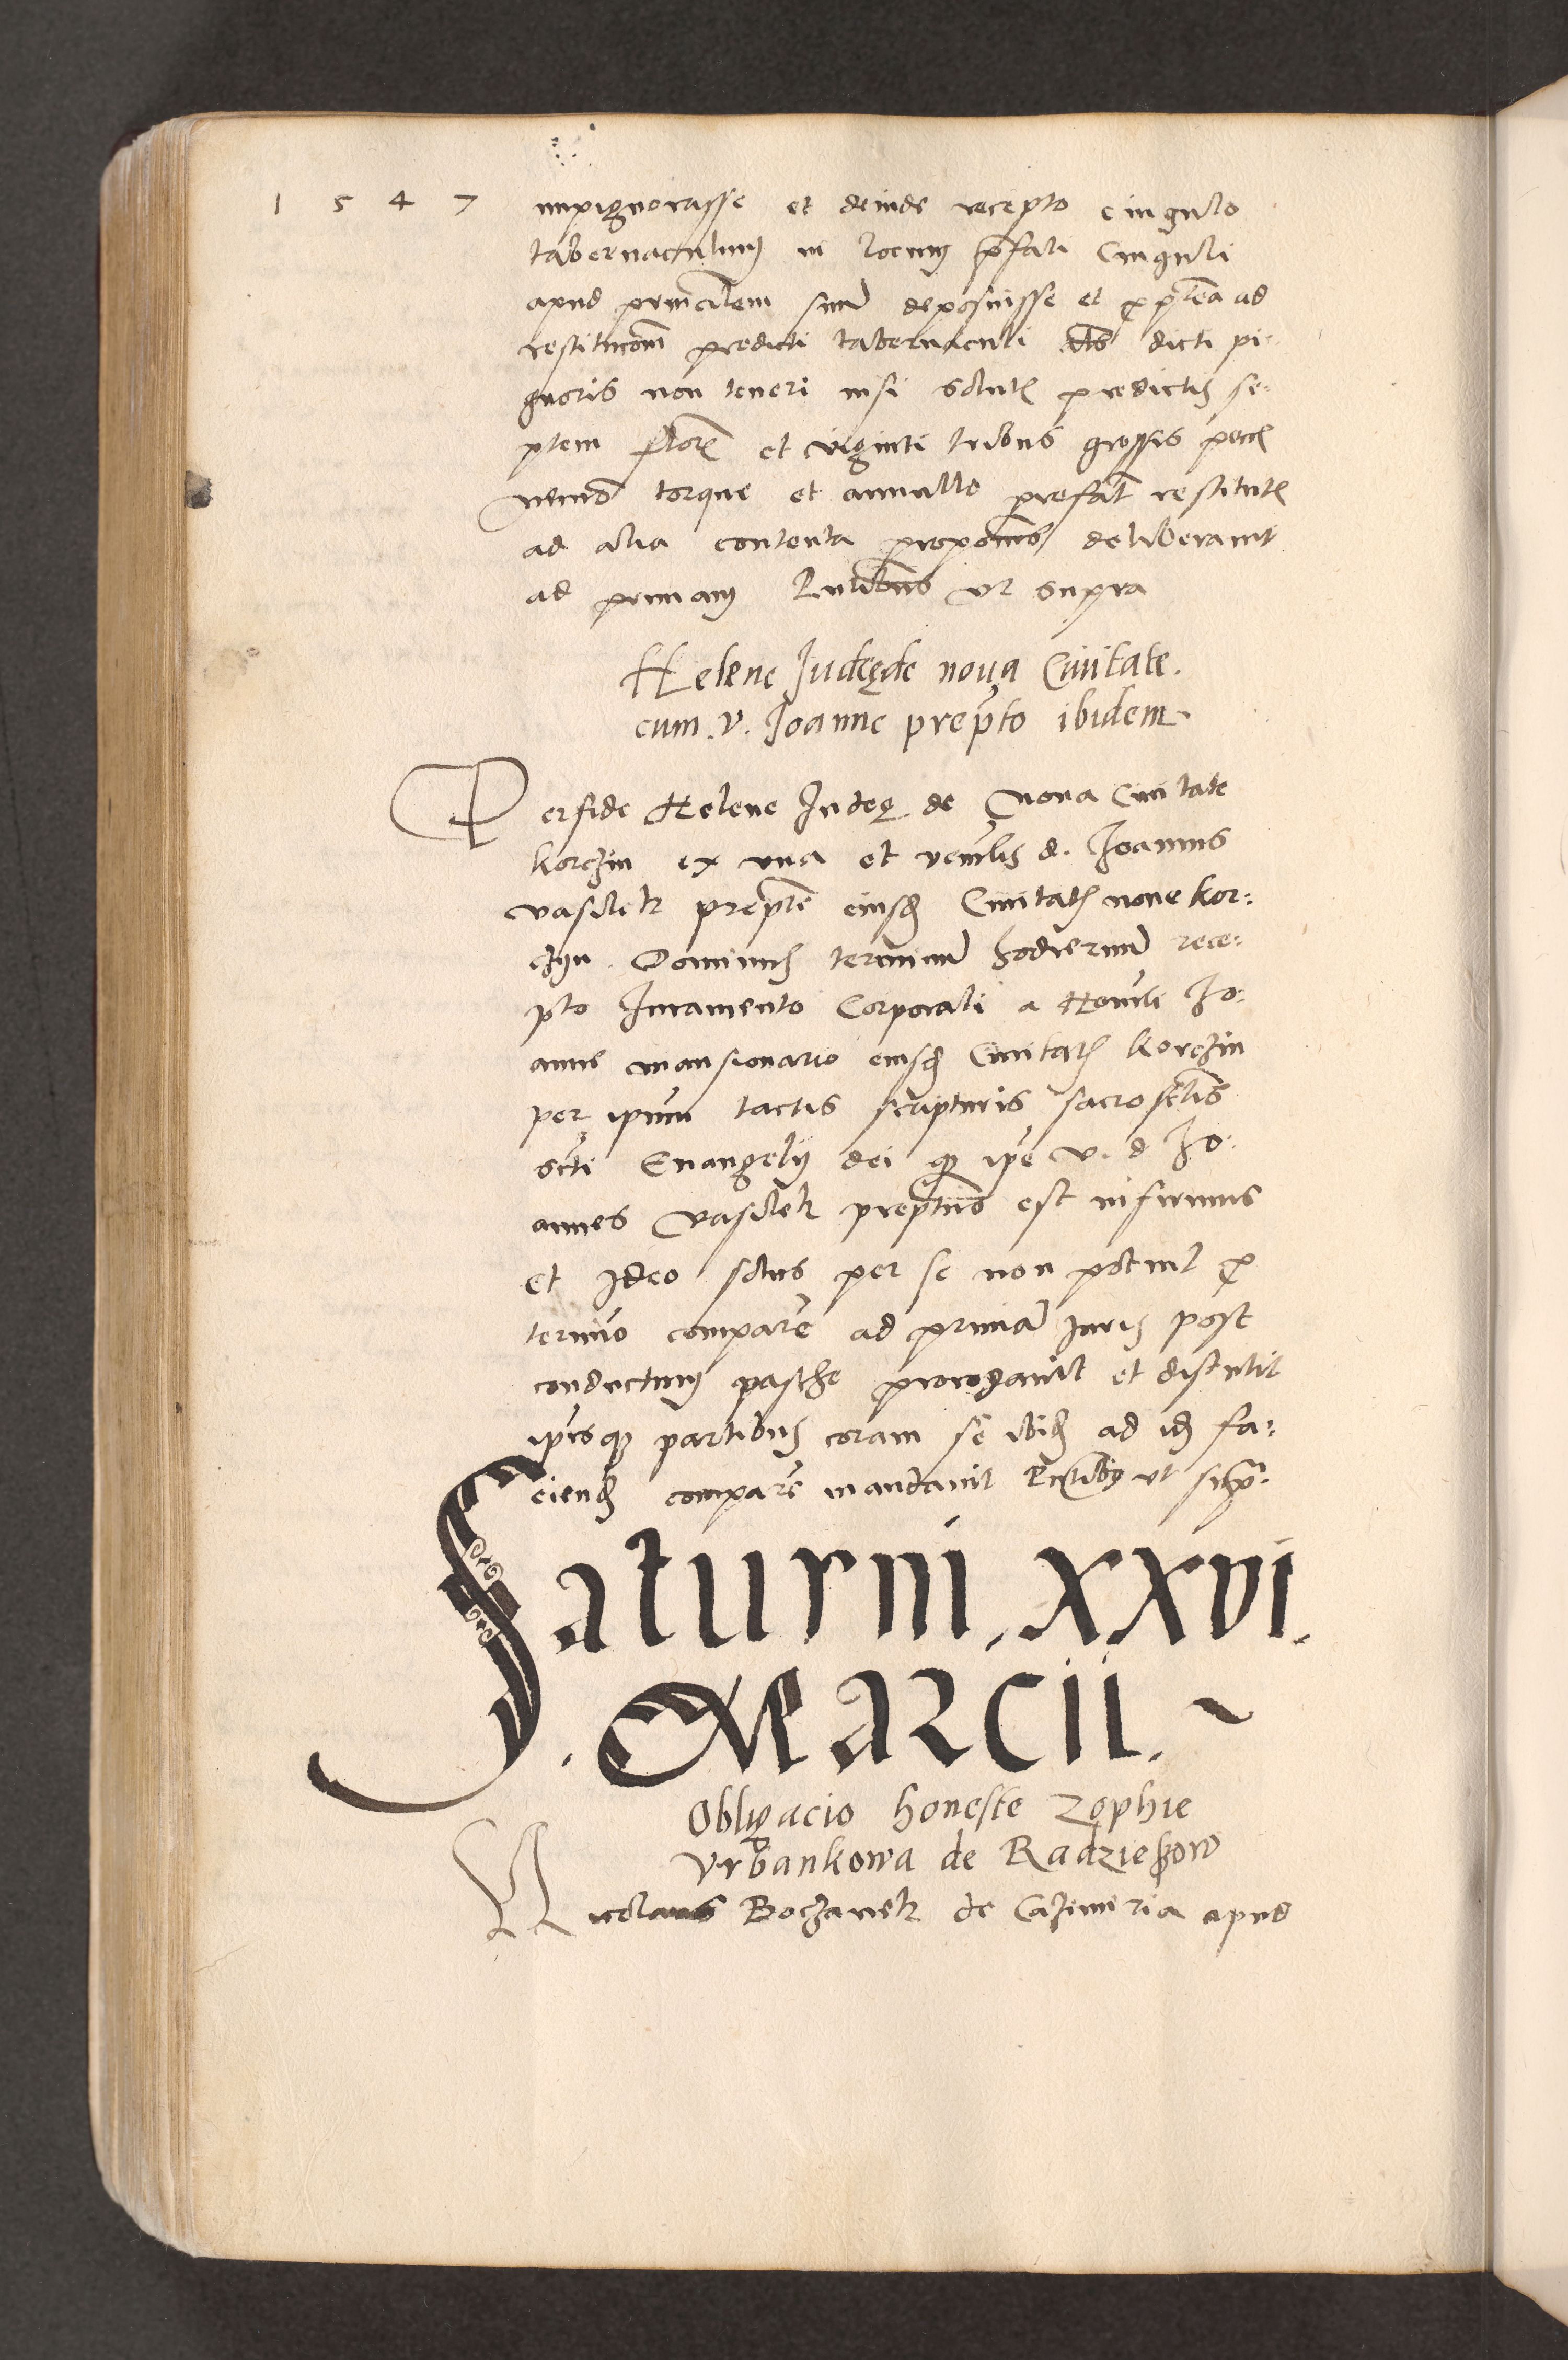 1 5 4 7
impignorasse et deinde recepto cingulo
tabernaculum in locum p̄fati Cinguli
apud principalem suū deposuisse et p̱pterea ad
restitucōm predicti tabernaculi dicti pi-
gnoris non teneri nisi solutis predictis se-
ptem floreñ et viginti tribus grossis
torque et annullo prefat̄ restitutis
ad alia contenta proponens deliberavit
ad primam ut supra
Helene Judeę de nova Civitate.
cum .v. Joanne prepto ibidem.
Perfide Helene Judeę de Nova Civitate
korczin ex una et venerlis d. Joannis
Vasilek prepti eiusd Civitatis nove kor-
czyn. Dominus terminū hodiernū rece-
pto Iuramento Corporali a Honorli Jo-
anne mansionario eiusd Civitatis korczin
per ipsum tactis scripturis sacrosctis
scti Evangelij dei q̄ ipse v. d Jo-
annes Vasilek prepts est infirmus
et Ideo solus per se non potuit p
termio compare ad primā Iuris post
conductum pasche prorogavit et distulit
ipsisq̄ partibus coram se ibid ad id fa-
ciend compare mandavit pntibus ut supr̄.
Saturni .xxvi.
. Marcii. ~
Obligacio honeste Zophie
Urbankowa de Radzieȷow
Nicolaus Boczanek de Cazimiria apud